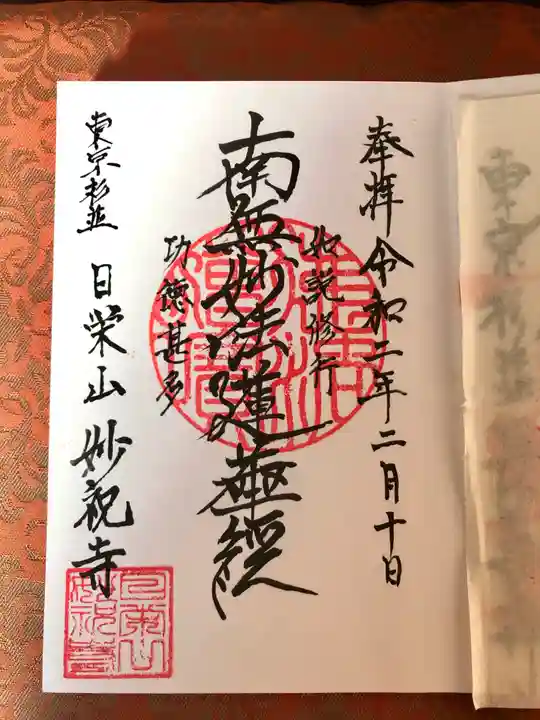 奉拝 令和二年二月十日
如説修行
南無妙法蓮華経
功德甚多
東京杉並
日栄山 妙祝寺
日栄山
妙祝寺
東京杉並